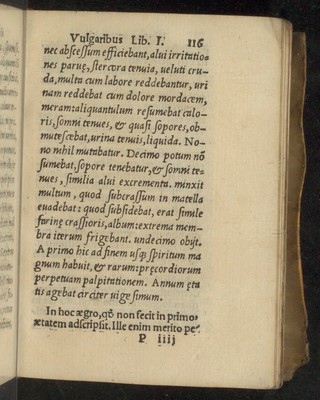 Vulgaribus Lib. I. 116
nec abscessum efficiebant, alui irritatio-
nes paruę, stercora tenuia, ueluti cru-
da, multa cum labore reddebantur, uri
nam reddebat cum dolore mordacem,
meram: aliquantulum resumebat calo-
ris, somni tenues, & quasi sopores, ob-
mutescebat, urina tenuis, liquida. No-
no nihil mutabatur. Decimo potum nõ
sumebat, sopore tenebatur, & somni te-
nues, similia alui excrementa. minxit
multum, quod subcrassum in matella
euadebat: quod subsidebat, erat simile
farinę crassioris, album: extrema mem-
bra iterum frigebant. undecimo obijt.
A primo hic ad finem usq; spiritum ma
gnum habuit, & rarum: pręcordiorum
perpetuam palpitationem. Annum ęta
tis agebat circiter uigesimum.
In hoc ægro, qđ non fecit in primo,
ætatem adscripsit. Ille enim merito pe-
P iiij